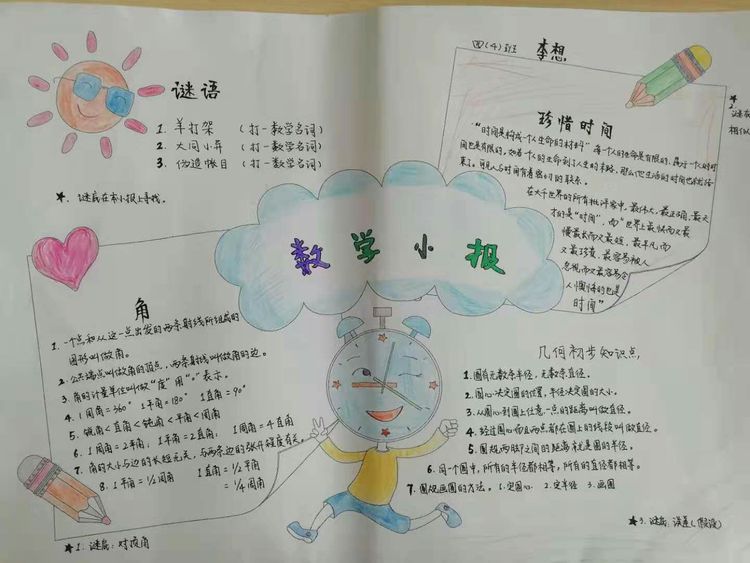 谜语
1. 羊打架 (打一数学名词)
2. 大同小异 (打一数学名词)
3. 伪造帐目 (打一数学名词)
★. 谜底在本小报上寻找。
四(4)班 李想
珍惜时间
“时间是构成一个人生命的材料”每个人的生命是有限的,属于一个人的时
间也是有限的,如若一个人的生命到了人生的末路,那么他生活的时间也就
来了。可见人与时间有着密切的联系。
在大千世界的所有批评家中,最伟大、最正确、最天
才的是“时间”,而“世界上最快而又最
慢最长而又最短、最平凡而
又最珍贵、最容易被人
忽视而又最容易令
人惋惜的也是
时间”
★
2.
谜底
相似
数学小报
角
1. 一个点和从这一点出发的两条射线所组成的
图形叫做角。
2. 公共端点叫做角的顶点,两条射线叫做角的边。
3. 角的计量单位叫做“度”用“°”表示。
4. 1周角=360° 1平角=180° 1直角=90°
5. 锐角<直角<钝角<平角<周角
6. 1周角=2平角; 1平角=2直角; 1周角=4直角
7. 角的大小与边的长短无关,与两条边的张开程度有关。
8. 1平角=1/2周角 1直角=1/2平角
=1/4周角
★1. 谜底:对顶角
几何初步知识点,
1. 圆有无数条半径,无数条直径。
2. 圆心决定圆的位置,半径决定圆的大小。
3. 从圆心到圆上任意一点的距离叫做直径。
4. 经过圆心而且两点都在圆上的线段叫做直径。
5. 圆规两脚之间的距离就是圆的半径。
6. 同一个圆中,所有的半径都相等,所有的直径都相等。
7. 圆规画圆的方法。 1.定圆心 2.定半径 3.画圆
★3. 谜底: (假设)